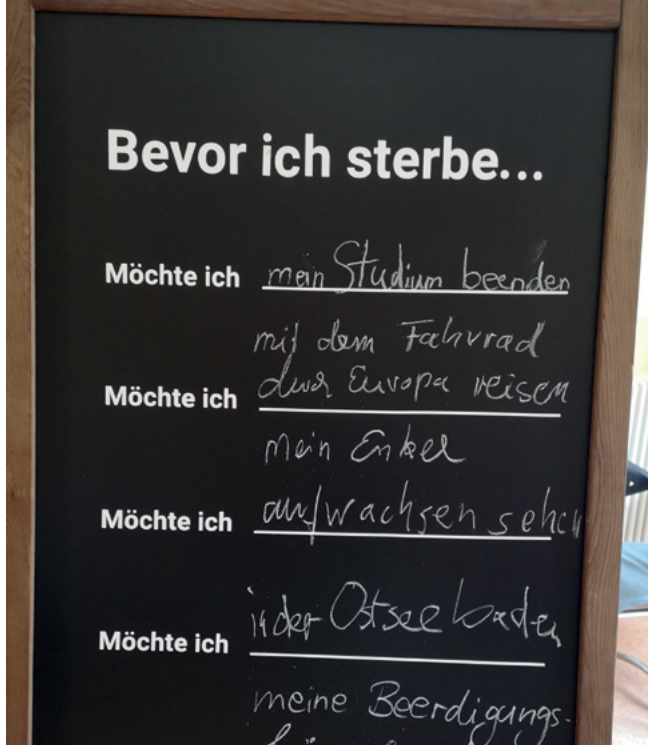 Bevor ich sterbe...
Möchte ich mein Studium beenden
mit dem Fahrrad
Möchte ich durch Europa reisen
mein Enkel
Möchte ich aufwachsen sehen
in der Ostsee baden
Möchte ich
meine Beerdigungs-